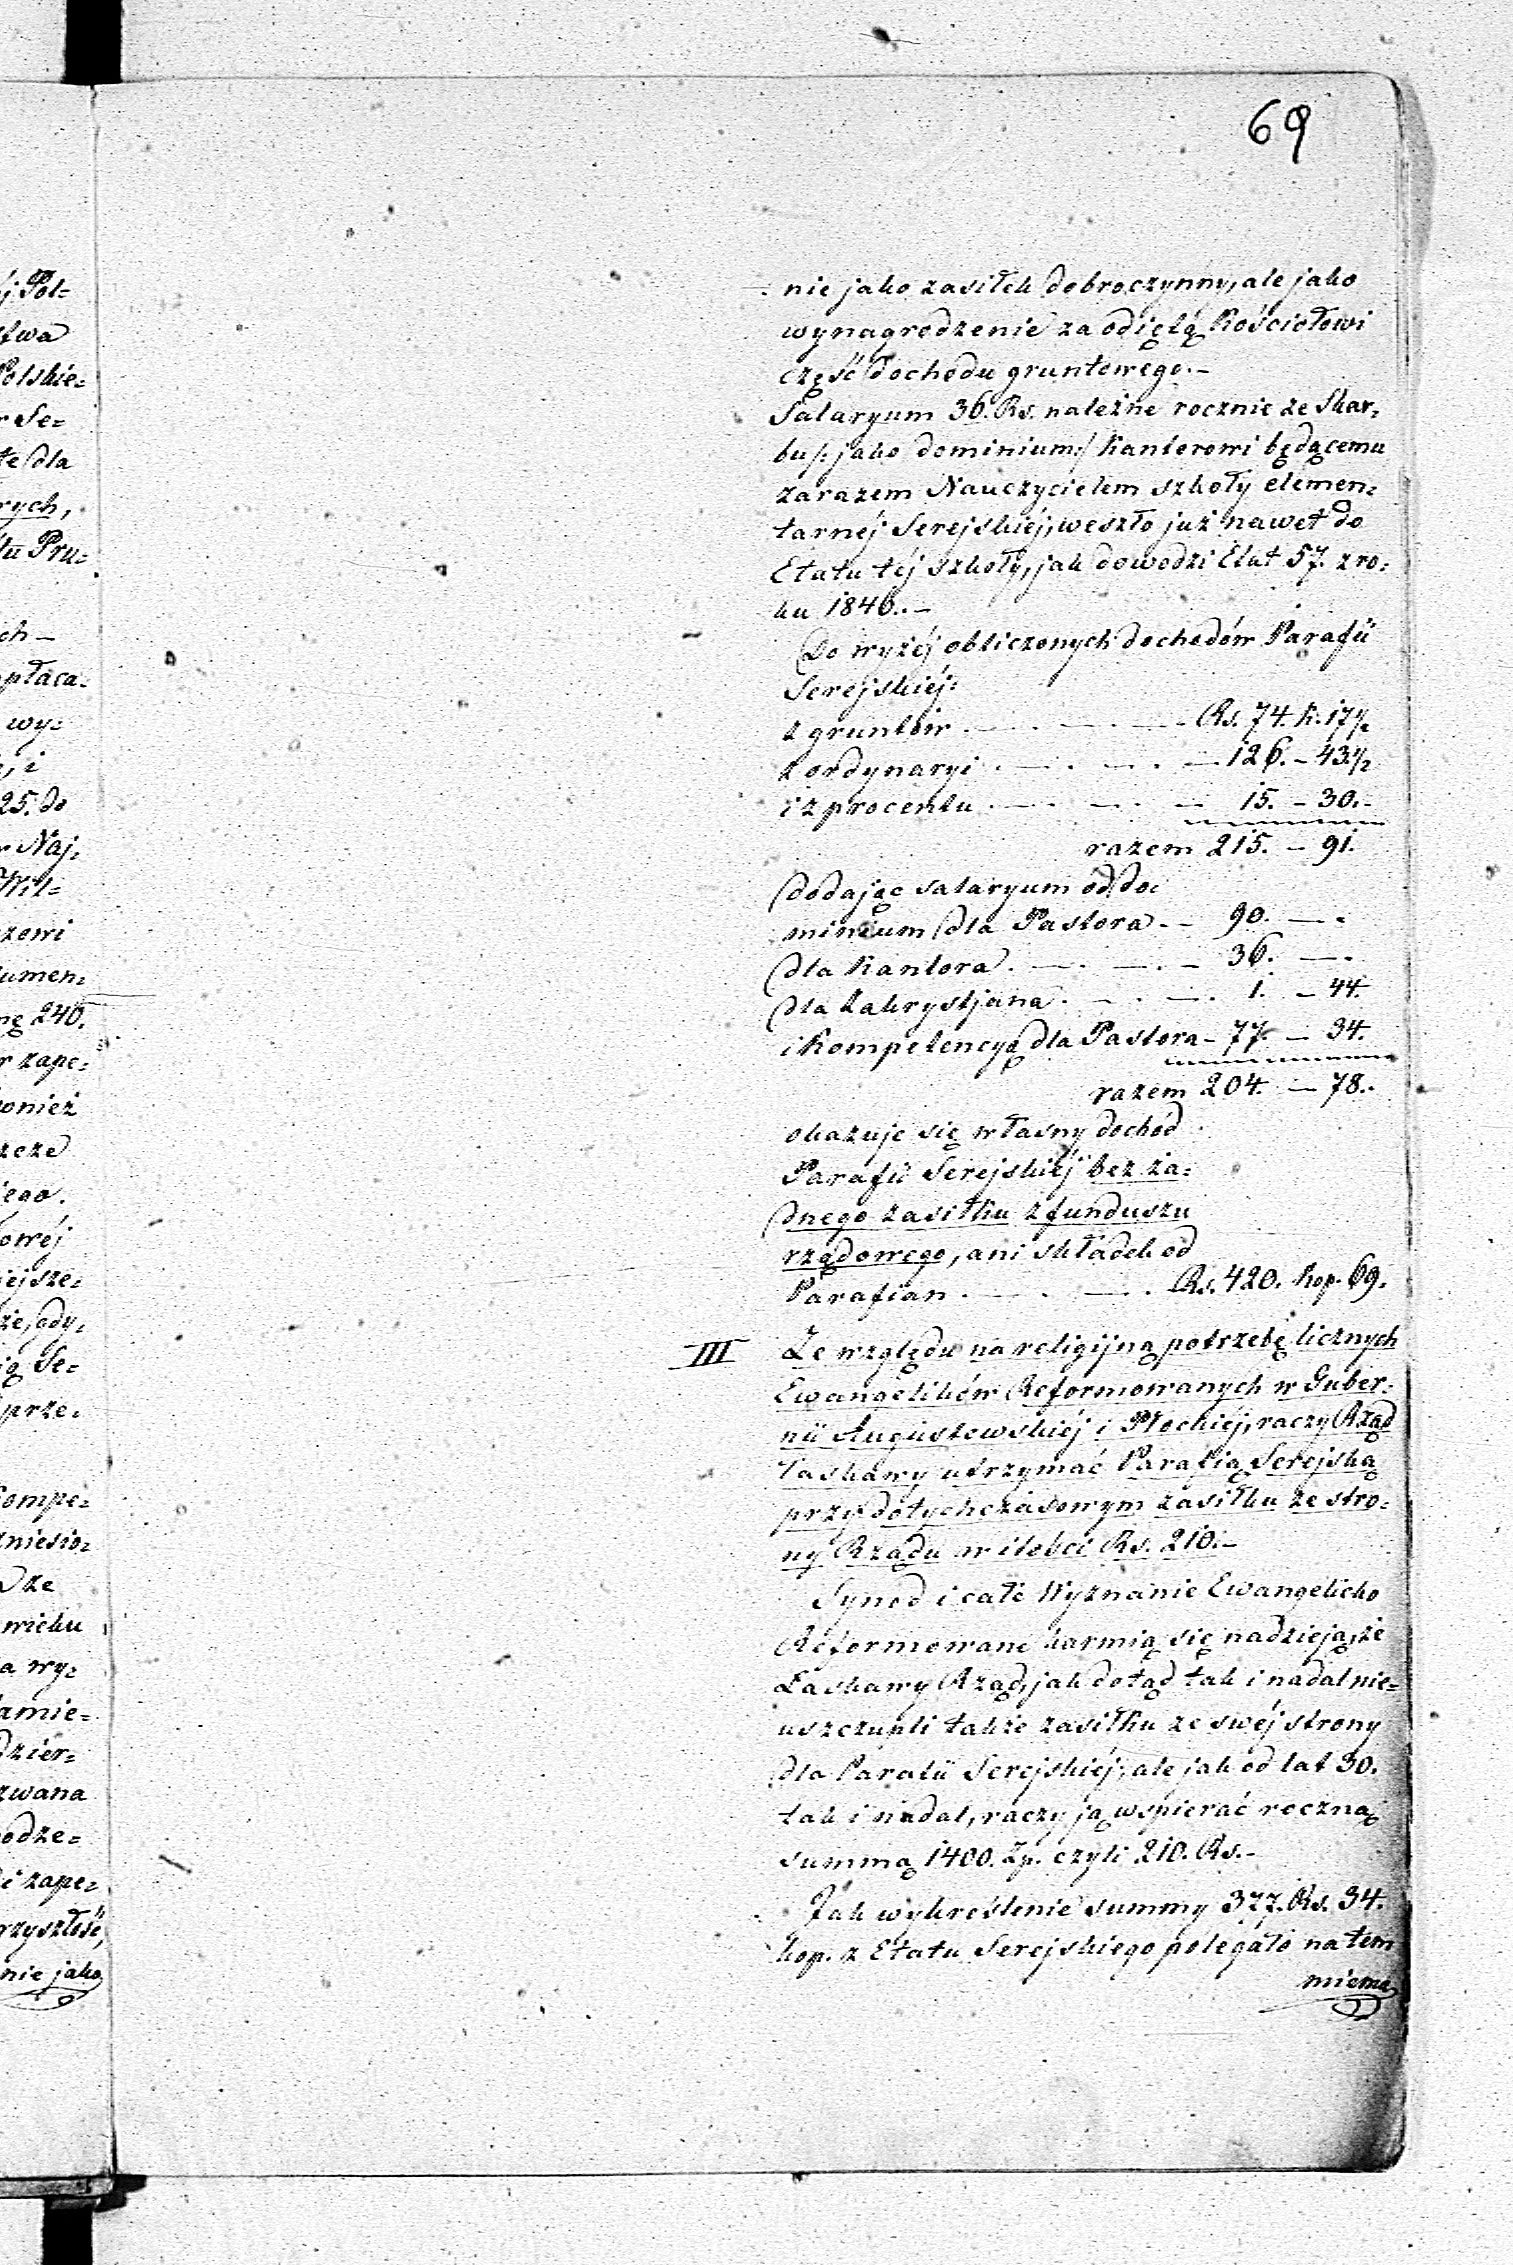 69
j Pol=
stwa
Polskie=
r Se=
te dla
rych,
tu Pru=
ch –
płaca=
wy=
, i
25. do
r Naj=
Wil=
zowi
umen=
nę 240.
r zape=
onież
zcze
iego.
owéj
iejsze=
że, ody=
ią Se=
prze=
ompe=
zniesio=
ze
wieku
a wy=
amie=
dzier=
zwana
odze=
i zape=
rzyszłość,
nie jako
nie jako zasiłek dobroczynny, ale jako
wynagrodzenie za odiętą Kościołowi
część dochodu gruntowego. –
Salaryum 36. Rs. należne rocznie ze Skar=
bu /: jako dominium :/ Kantorowi będącemu
zarazem Nauczycielem szkoły elemen=
tarnéj Serejskiéj, weszło już nawet do
Etatu téj szkoły, jak dowodzi Etat 57. z ro=
ku 1846. –
Do wyżéj obliczonych dochodów Parafii
Serejskiéj:
z gruntów . — . — . — Rs. 74. K. 17½
z ordynaryi . — . — . — 126. – 43½
i z procentu . — . — . — 15. – 30. –
razem 215. – 91.
dodając salaryum od do=
minium dla Pastora . – 90. — .
dla Kantora . — . — . – 36. — .
dla Zakrystjana . — . — . 1. – 44.
i Kompetencyą dla Pastora – 77. – 34.
razem 204. – 78. .
okazuje się własny dochód
Parafii Serejskiéj bez ża=
dnego zasiłku z funduszu
rządowego, ani składek od
Parafian . — . — . Rs. 420. kop. 69.
III Ze względu na religijną potrzebę licznych
Ewangelików Reformowanych w Guber=
nii Augustowskiéj i Płockiéj, raczy Rząd
łaskawy utrzymać Parafią Serejską
przy dotychczasowym zasiłku ze stro=
ny Rządu w ilości Rs. 210. –
Synod i całe Wyznanie Ewangelicko
Reformowane karmią się nadzieją, że
Łaskawy Rząd, jak dotąd tak i nadal nie=
uszczupli także zasiłku ze swéj strony
dla Parafii Serejskiéj, ale jak od lat 30.
tak i nadal, raczy ją wspierać roczną
summą 1400. Zp. czyli 210. Rs. –
Jak wykreślenie summy 377. Rs. 34.
kop. z Etatu Serejskiego polegało na tem
miema